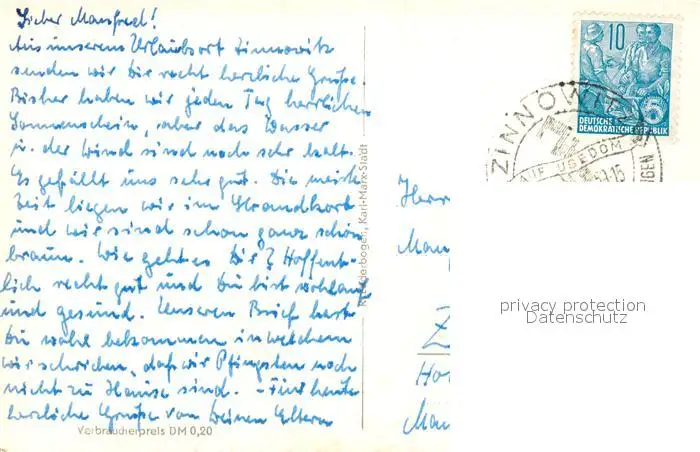 Lieber Manfred!
Aus unserem Urlaubsort Zinnowitz
senden wir Dir recht herzliche Grüße.
Bisher haben wir jeden Tag herrlichen
Sonnenschein, aber das Wasser
u. der Wind sind noch sehr kalt.
Es gefällt uns sehr gut. Die meiste
Zeit liegen wir im Strandkorb
und wir sind schon ganz schön
braun. Wie geht es Dir? Hoffent-
lich recht gut und Du bist wohlauf
und gesund. Unseren Brief hast
Du wohl bekommen in welchem
wir schrieben, daß wir Pfingsten noch
nicht zu Hause sind. – Für heute
herzliche Grüße von Deinen Eltern
Verbraucherpreis DM 0,20
Karl-Marx-Stadt
10
DEUTSCHE
DEMOKRATISCHE REPUBLIK
ZINNOWITZ
AUF USEDOM
Herr
Man
Z
Ho
Man
privacy protection
Datenschutz